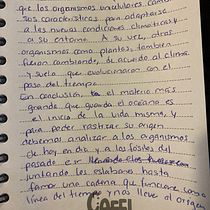 que los organismos unicelulares cambien
sus características para adaptarse
a las nuevas condiciones climáticas y
a su entorno. A su vez, otros
organismos como plantas, también
fueron cambiando, de acuerdo al clima
y suelo que evolucionaron con el
paso del tiempo.
En conclusión, el misterio más
grande que guarda el océano es
el inicio de la vida misma, y
para poder rastrear su origen
debemos analizar a los organismos
de hoy en día y a los fósiles del
pasado e ir
juntando los eslabones hasta
formar una cadena que funcione como
línea del tiempo y nos lleve al origen